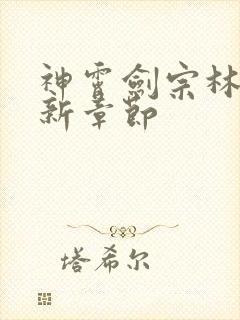 神霄劍宗林
新章節
塔希尔